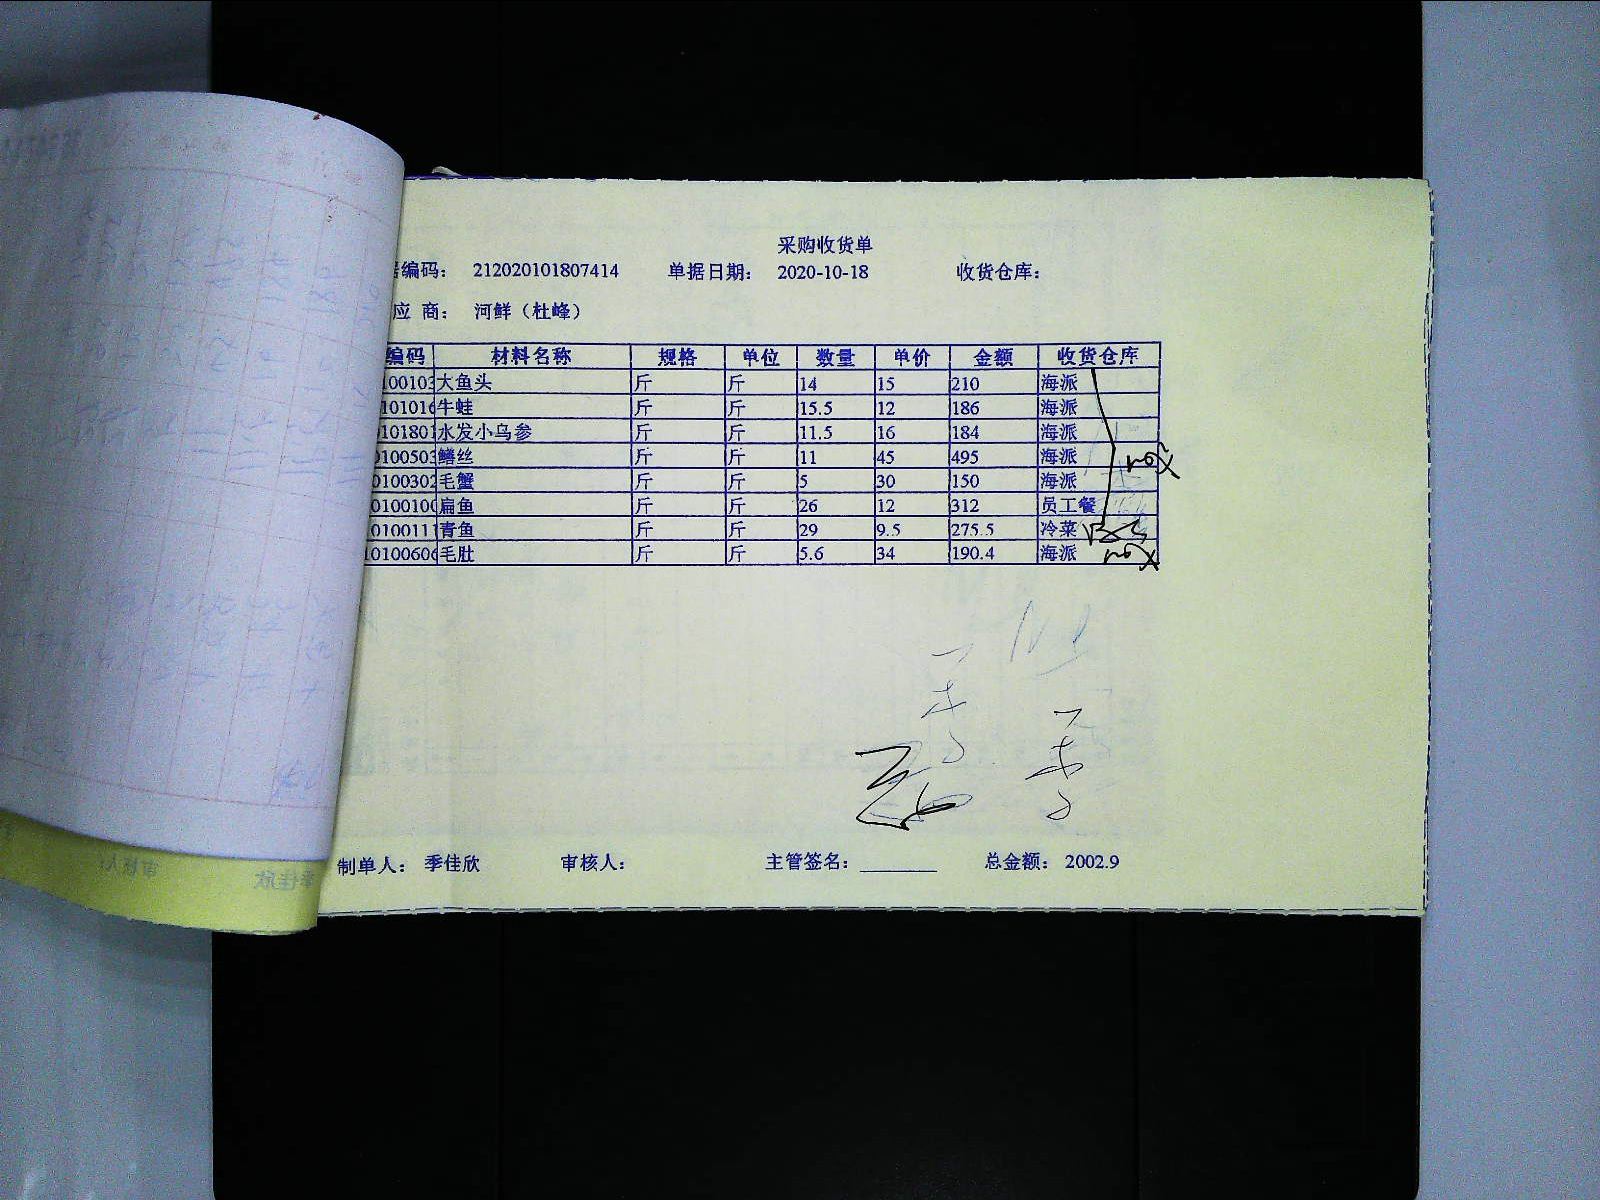 采购收货单
编码： 212020101807414 单据日期： 2020-10-18 收货仓库：
应 商： 河鲜（杜峰）
编码 材料名称 规格 单位 数量 单价 金额 收货仓库
100103 大鱼头 斤 斤 14 15 210 海派
101016 牛蛙 斤 斤 15.5 12 186 海派
101801 水发小乌参 斤 斤 11.5 16 184 海派
0100503 鳝丝 斤 斤 11 45 495 海派
0100302 毛蟹 斤 斤 5 30 150 海派
0100100 扁鱼 斤 斤 26 12 312 员工餐
0100111 青鱼 斤 斤 29 9.5 275.5 冷菜
10100606 毛肚 斤 斤 5.6 34 190.4 海派
制单人： 季佳欣 审核人： 主管签名： 总金额： 2002.9